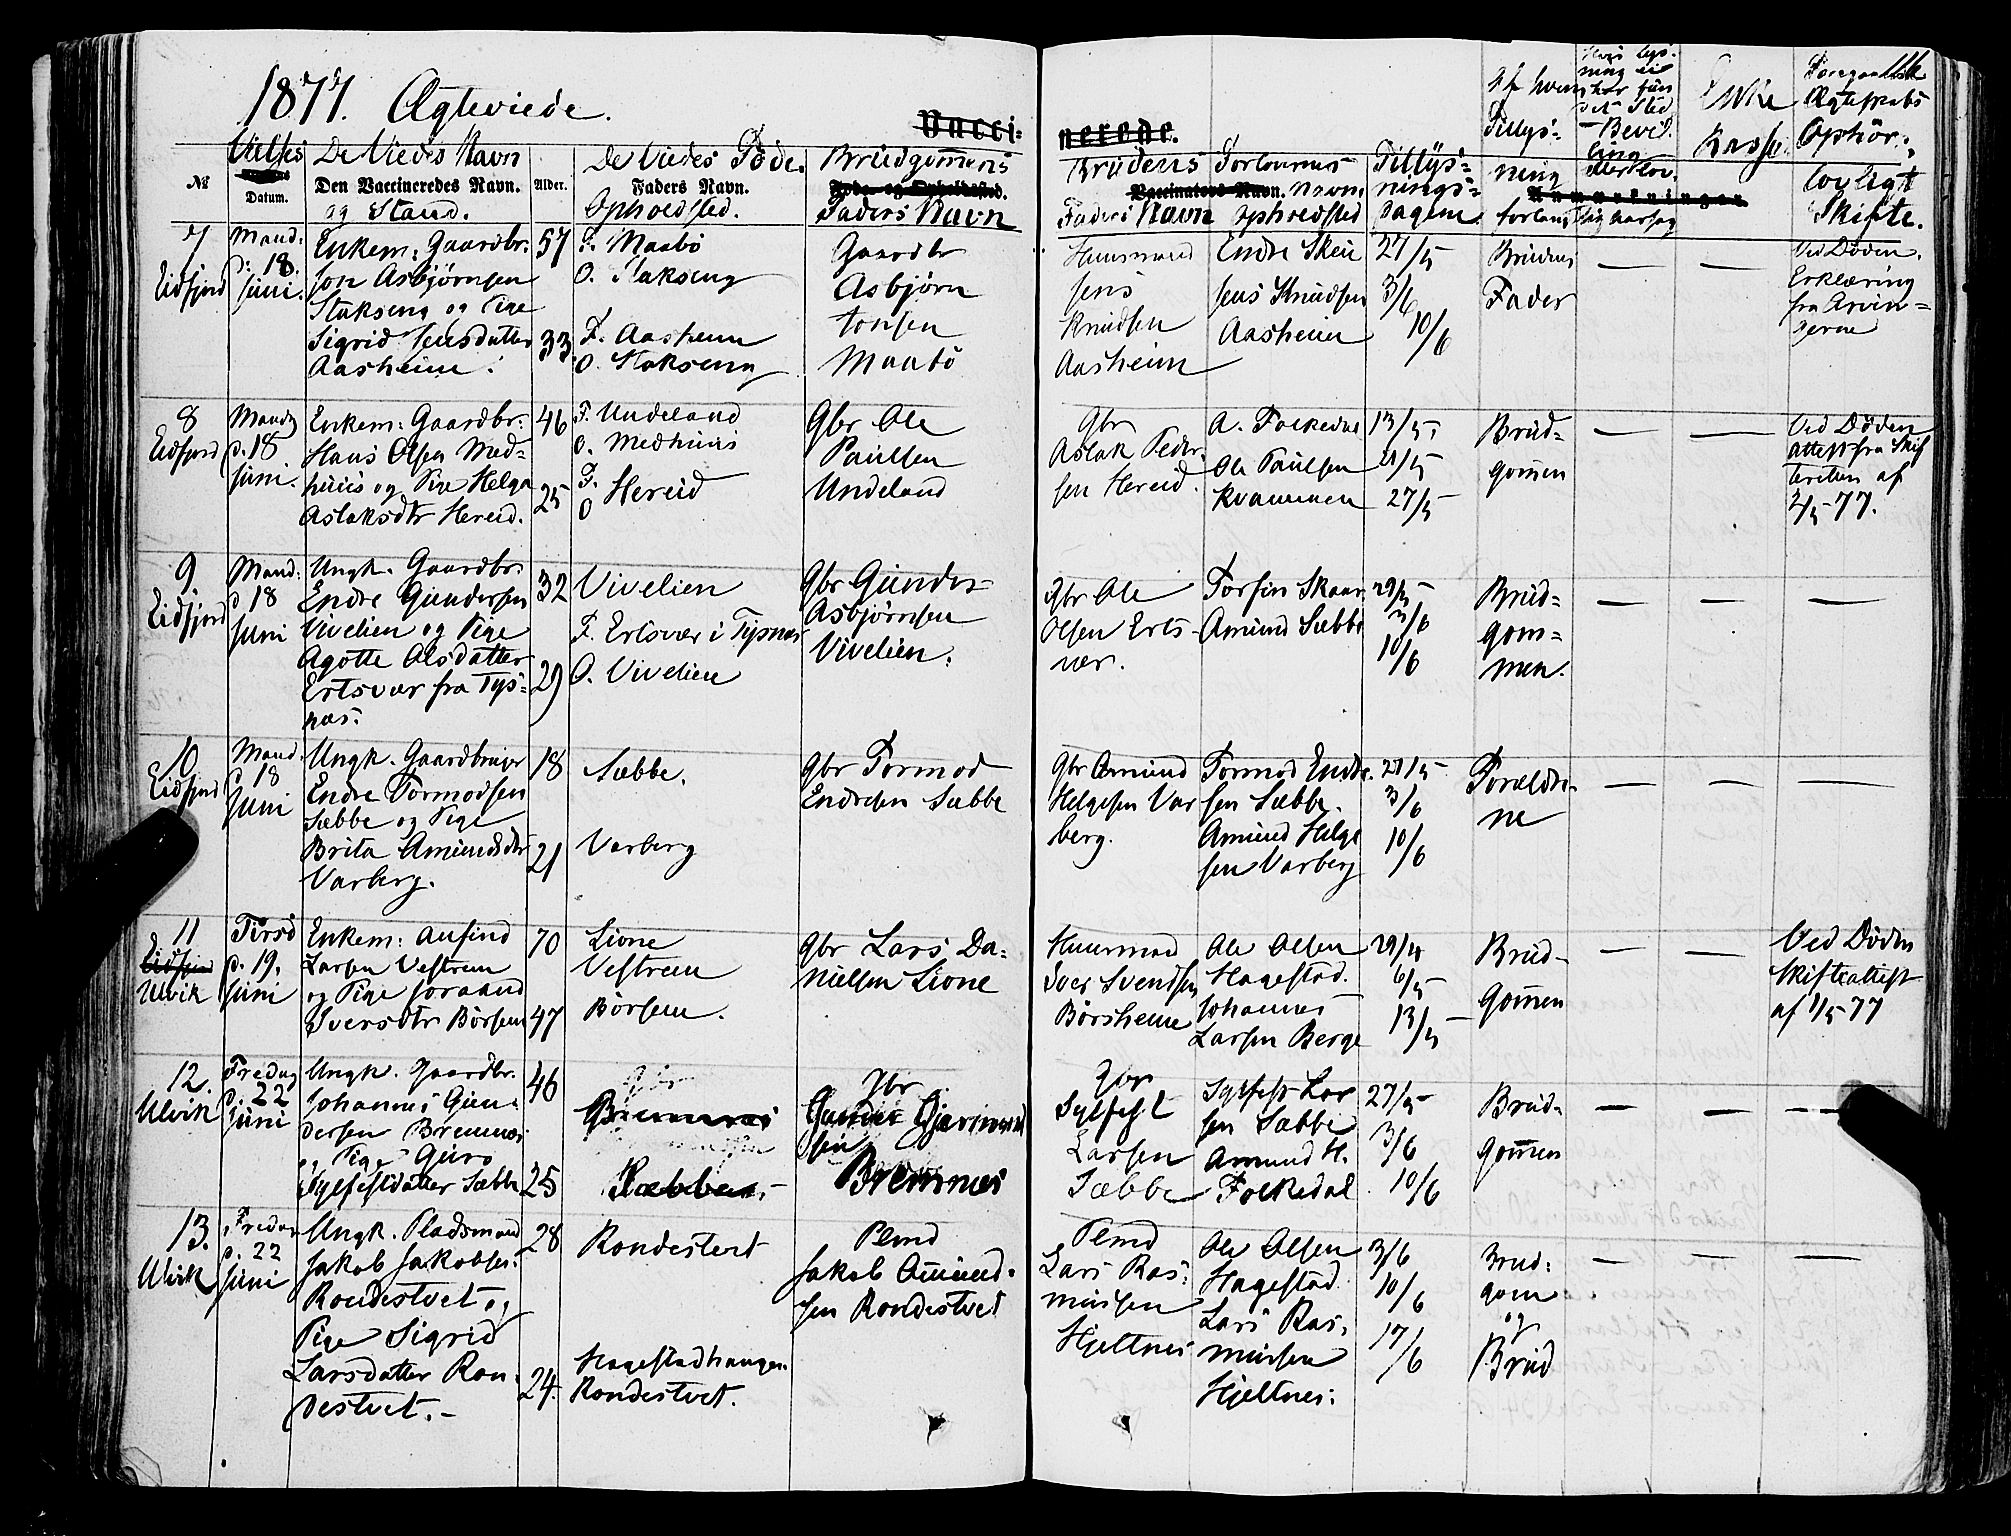 1877. Ægteviede.
Vacci-
nerede.
116
№
Vielses
Datum.
De Viedes Navn
Den Vaccineredes Navn.
og Stand.
Alder.
De Viedes Föde-
Faders Navn.
Opholdsted.
Brudgommens
Føde- og Opholdssted.
Faders Navn
Brudens
Faders Navn
Forlovernes
Vaccinateurs Navn. Navn
Opholdsted
Tillys-
nings-
dagene
Af hvem
Tillys-
ning
forlangt
Hvis Lys-
ning ei
har fun-
det Sted
- Bevil-
ling
Anmærkninger.
Enke
Kasse.
Foregaaende
Ægteskabs
Ophör,
lovligt
Skifte.
7
Eidfjord
Mand:
d: 18
Juni.
Enkem: Gaardbr:
Jon Asbjörnsen
Stakseng og Pige
Sigrid Jensdatter
Aasheim.
57
33.
F. Maabö
O. Stakseng
F. Aasheim
O. Stakseng
Gaardbr
Asbjörn
Jonsen
Maabö
Huusmand
Jens
Knudsen
Aasheim
Endre Skei
Jens Knudsen
Aasheim
27/5
3/6
10/6
Brudens
Fader
— —
Ved Döden.
Erklæring
fra Arvin-
gerne
8
Eidfjord
Mandag
d. 18
Juni.
Enkem: Gaardbr:
Hans Olsen Med-
huus og Pige Helga
Aslaksdtr Hereid.
46
25
F. Undeland
O. Medhuus
F.
O Hereid
Gbr Ole
Paulsen
Undeland
Gbr
Aslak Peder-
sen Hereid.
A. Folkedal
Ole Paulsen
Kvammen
13/5
21/5
27/5
Brud-
gommen
— —
Ved Döden
attest fra Skif
teretten af
2/5 77.
9
Eidfjord
Mand:
d 18
Juni
Ungk. Gaardbr.
Endre Gundersen
Vivelien og Pige
Agotte Olsdatter
Ertsvær fra Tys-
næs.
32
29
Vivelien
F. Ertsvær i Tysnæs
O. Vivelien
Gbr Gunder
Asbjörnsen
Vivelien.
Gbr Ole
Olsen Erts-
vær.
Torfin Skaar
Amund Sæbbe
3/6
10/6
Brud-
gom-
men.
— — —
10
Eidfjord
Mand.
d 18
Juni
Ungk. Gaardbruger
Endre Tormodsen
Sæbbe og Pige
Brita Amundsdtr
Varberg.
18
21
Sæbbe.
Varberg
Gbr Tormod
Endresen Sæbbe
Gbr Amund
Helgesen Var
berg.
Tormod Endre-
sen Sæbbe.
Amund Helge
sen Varberg
27/5
3/6
10/6
Forældre-
ne
— — —
11
Eidfjord
Ulvik
Tirsd
d. 19.
Juni
Enkem: Anfind
Larsen Vestrem
og Pige Joraand
Iversdtr Börsem
70
47
Lione
Vestrem
Börsem.
Gbr Lars Da-
nielsen Lione
Huusmand
Iver Svendsen
Börsheim
Ole Olsen
Hagestad.
Johannes
Larsen Berge
29/4
6/5
13/5
Brud-
gommen
— —
Ved Döden
Skifteattest
af 1/5 77
12.
Ulvik
Fredag
d. 22
Juni
Ungk. Gaardbr.
Johannes Gun-
dersen Bremnes
og Pige Guro
Sylfestdatter Sæbbe
46
25
Bremnes
Sæbbe
Gbr
Gunder Gjermund
sen
Bremnes
Gbr
Sylfest
Larsen
Sæbbe
Sylfest Lar
sen Sæbbe
Amund H.
Folkedal
27/5
3/6
10/6
Brud-
gommen
— — —
13.
Ulvik
Fredag
d. 22
Juni
Ungk. Pladsmand
Jakob Jakobsen
Rondestvet og
Pige Sigrid
Larsdatter Ron-
destvet.
28
24.
Rondestvet
Hagestadhaugen
Rondestvet.
Plmd
Jakob Amund-
sen Rondestvet
Plmd
Lars Ras-
mussen
Hjeltnes
Ole Olsen
Hagestad
Lars Ras-
mussen
Hjeltnes.
3/6
10/6
17/6
Brud-
gom
og
Brud
— — —